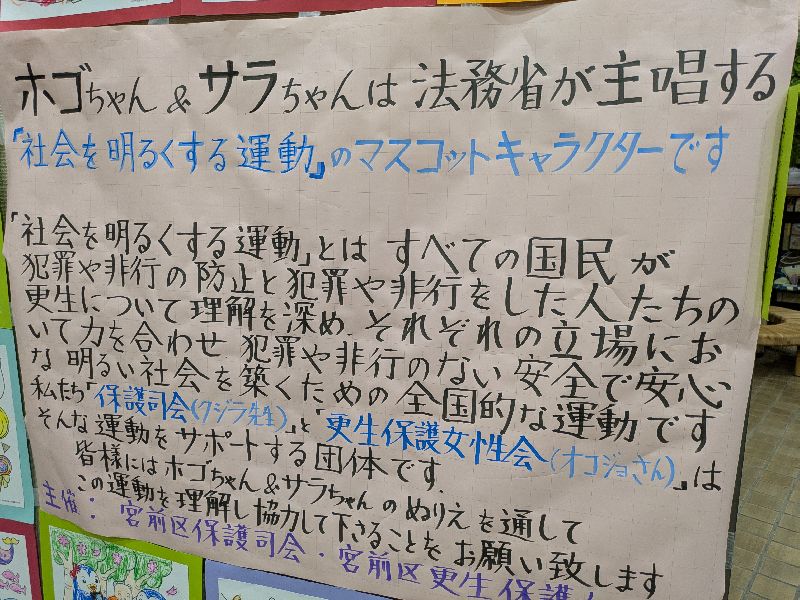 ホゴちゃん&サラちゃんは法務省が主唱する
「社会を明るくする運動」のマスコットキャラクターです
「社会を明るくする運動」とは すべての国民が
犯罪や非行の防止と犯罪や非行をした人たちの
更生について理解を深め、それぞれの立場にお
いて力を合わせ 犯罪や非行のない安全で安心
な明るい社会を築くための全国的な運動です
私たち「保護司会(クジラ先生)」と「更生保護女性会(オコジョさん)」は
そんな運動をサポートする団体です.
皆様にはホゴちゃん&サラちゃんのぬりえを通して
この運動を理解し協力して下さることをお願い致します
主催: 宮前区保護司会・宮前区更生保護